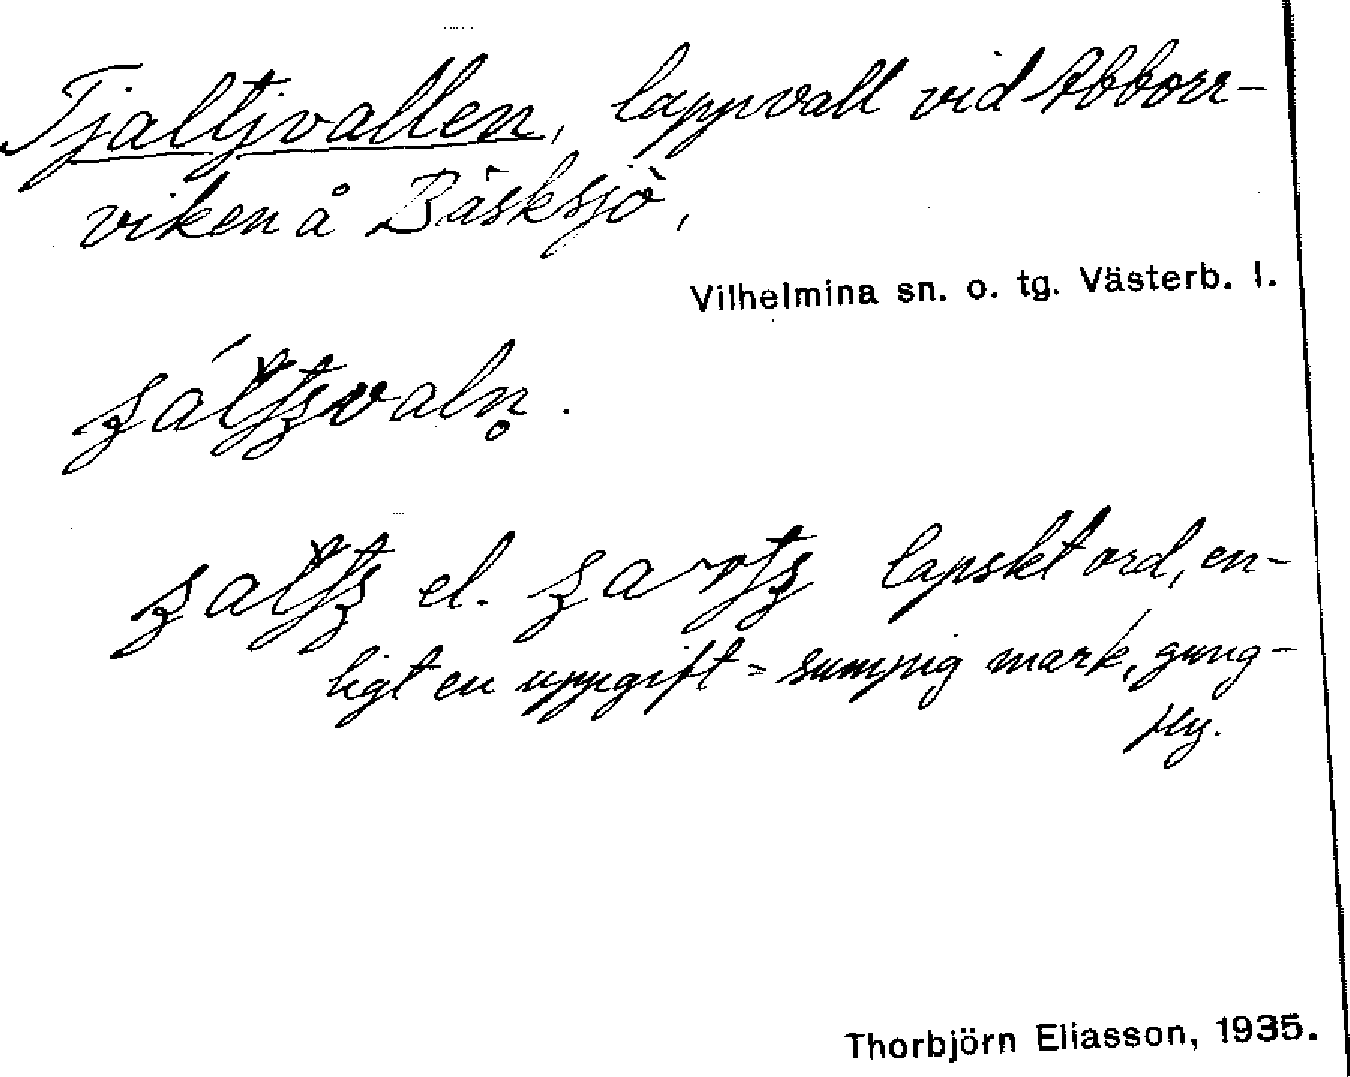 Tjaltjvallen, lappvall vid Abborr-
viken å Bäsksjö,
Vilhelmina sn. o. tg. Västerb. l.
el. lapskt ord, en-
ligt en uppgift = sumpig mark, gung-
fly.
Thorbjörn Eliasson, 1935.